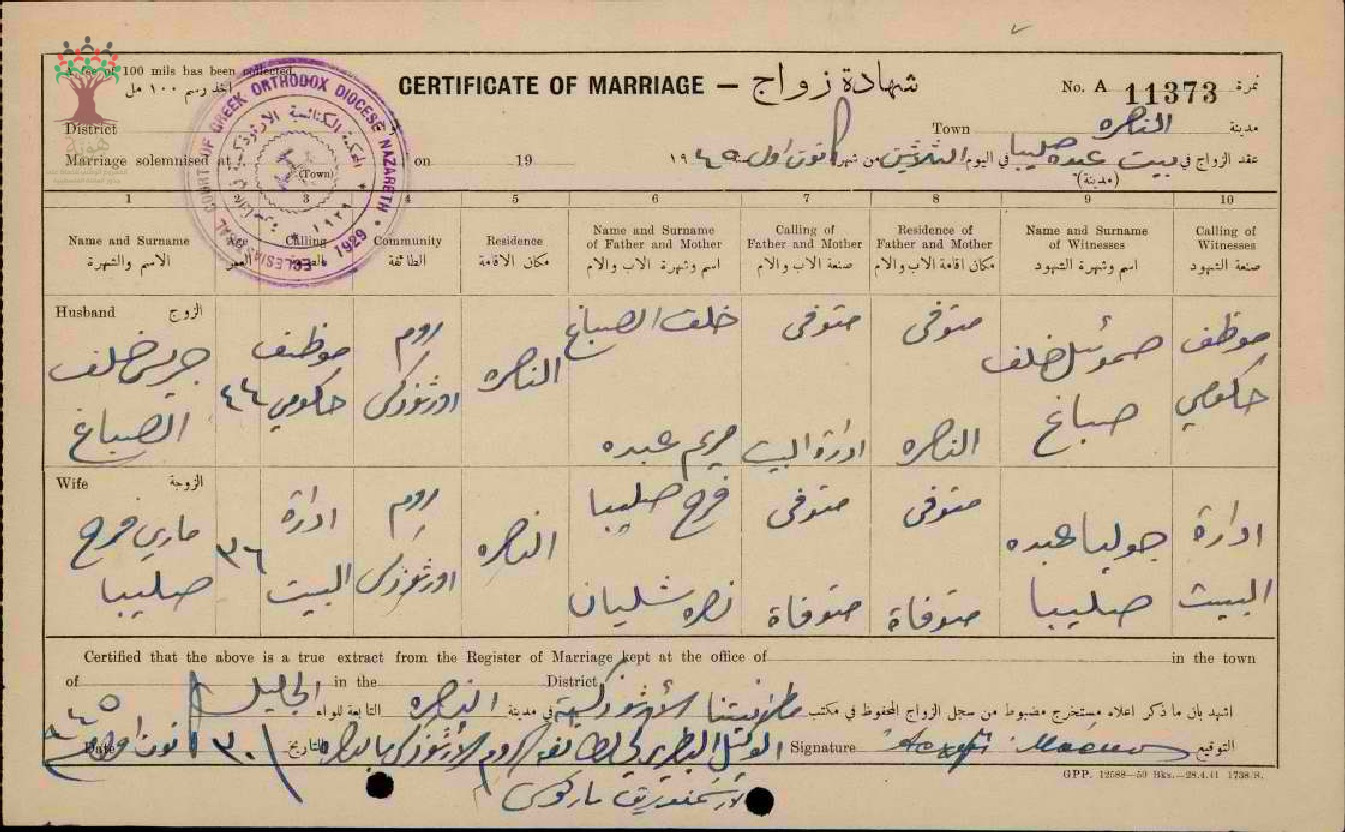 A fee of 100 mils has been collected.
اخذ رسم ١٠٠ مل
هوية
CERTIFICATE OF MARRIAGE — شهادة زواج
No. A 11373 نمرة
ECCLESIASTICAL COURT OF GREEK ORTHODOX DIOCESE NAZARETH • 1929 •
District
Town النصره مدينة
Marriage solemnised at (Town) on 19
عقد الزواج في بيت عبده صليبا (مدينة) في اليوم الثلاثين من شهر كانون اول ١٩٤٥
1 3 4 5 6 7 8 9 10
Name and Surname الاسم والشهرة
Age العمر
Calling الصنعة
Community الطائفة
Residence مكان الاقامة
Name and Surname of Father and Mother اسم وشهرة الاب والام
Calling of Father and Mother صنعة الاب والام
Residence of Father and Mother مكان اقامة الاب والام
Name and Surname of Witnesses اسم وشهرة الشهود
Calling of Witnesses صنعة الشهود
Husband الزوج
جريس خلف الصباغ
٤٤
موظف حكومي
روم اورثوذكس
الناصره
خلف الصباغ
مريم عبده
متوفى
ادارة البيت
متوفى
الناصره
صموئيل خلف صباغ
موظف حكومي
Wife الزوجة
ماري فرح صليبا
٣٦
ادارة البيت
روم اورثوذكس
الناصره
فرح صليبا
نصره شليان
متوفى
متوفاة
متوفى
متوفاة
جوليا عبده صليبا
ادارة البيت
Certified that the above is a true extract from the Register of Marriage kept at the office of in the town
of in the District
اشهد بان ما ذكر اعلاه مستخرج مضبوط من سجل الزواج المحفوظ في مكتب مطرانيتنا الأرثوذكسية في مدينة الناصره التابعة للواء الجليل
Date التاريخ ٣٠ كانون اول ٩٤٥
الوكيل البطريركي لطائفة الروم الأرثوذكس بالناصره
Signature التوقيع
الارشمندريت ماركوس
GPP. 12588—50 Bks.—28.4.41 1738/S.